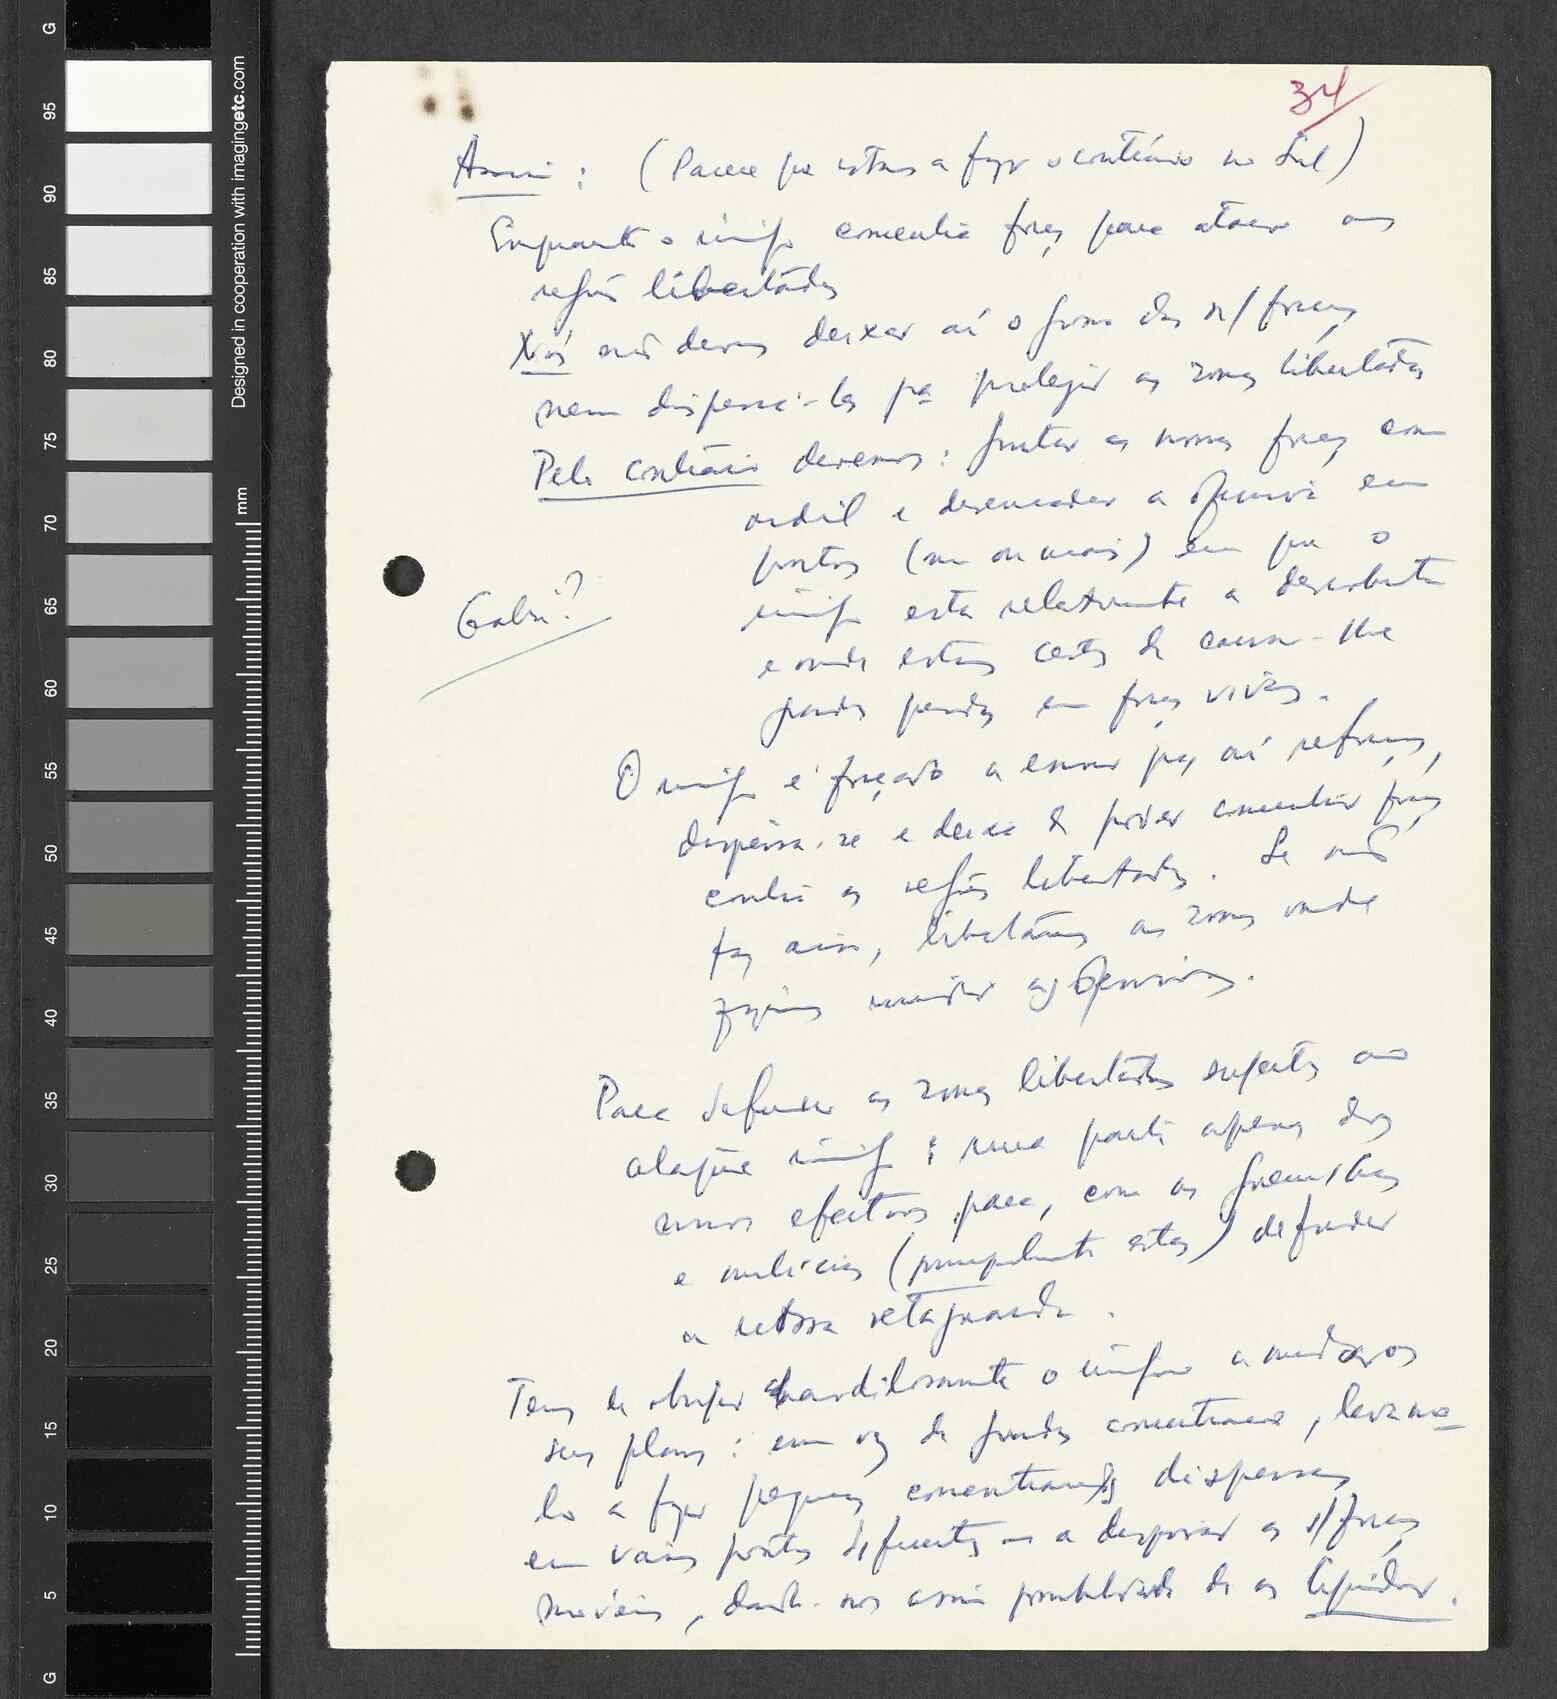 34
Assim : (Parece que estamos a fazer o contrário no Sul)
Enquanto o inimigo concentra forças para atacar as
regiões libertadas
Nós não devemos deixar aí o grosso das n/ forças
nem dispersá-las pª proteger as zonas libertadas
Pelo contrário devemos : juntar as nossas forças com
ardil e desencadear a ofensiva em
pontos (um ou mais) em que o
inimigo está relativamente a descoberto
e onde estamos certos de causar-lhe
grandes perdas em forças vivas.
Gabú?
O inimigo é forçado a enviar para aí reforços,
dispersa-se e deixa de poder concentrar forças
contra as regiões libertadas. Se não
faz assim, libertamos as zonas onde
fizemos as ofensivas.
Para defender as zonas libertadas sujeitas ao
ataque inimigo : uma parte apenas dos
nossos efectivos para, com as guerrilhas
e milícias (principalmente estas) defender
a nossa retaguarda.
Temos de obrigar ardilosamente o inimigo a mudar os
seus planos : em vez de grandes concentrações, levamo-
lo a fazer pequenas concentrações dispersas
em vários pontos diferentes ou a dispersar as s/ forças
móveis, dando-nos assim possibilidade de as liquidar.
Designed in cooperation with imagingetc.com
mm
G
95
90
85
80
75
70
65
60
55
50
45
40
35
30
25
20
15
10
5
G